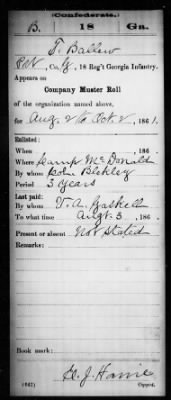 (Confederate.)
B. 18 Ga.
T. Ballew
Pvt, Co. G, 18 Reg't Georgia Infantry.
Appears on
Company Muster Roll
of the organization named above,
for Aug. 2 to Oct 2, 1861.
Enlisted:
When , 186 .
Where Camp McDonald
By whom Coln Blekley
Period 3 Years
Last paid:
By whom T. A. Gaskell
To what time Augt 3, 186 .
Present or absent Not Stated
Remarks:
Book mark:
(642) Copyist.